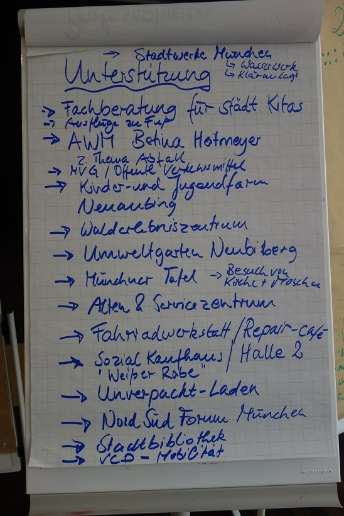 → Stadtwerke München
↳ Wasserwerk
↳ Kläranlage
Unterstützung
→ Fachberatung für städt Kitas
→ Ausflüge zu Fuß
→ AWM Betina Hotmeyer
z. Thema Abfall
→ MVG / Öffentl. Verkehrsmittel
→ Kinder- und Jugendfarm
Neuaubing
→ Walderlebniszentrum
→ Umweltgarten Neubiberg
→ Münchner Tafel → Besuch von
Kirche + Moschee
→ Alten & Servicezentrum
→ Fahrradwerkstatt / Repair-café
→ Sozial Kaufhaus / Halle 2
"Weißer Rabe"
→ Unverpackt-Laden
→ Nord Süd Forum München
→ Stadtbibliothek
→ VCD - Mobilität